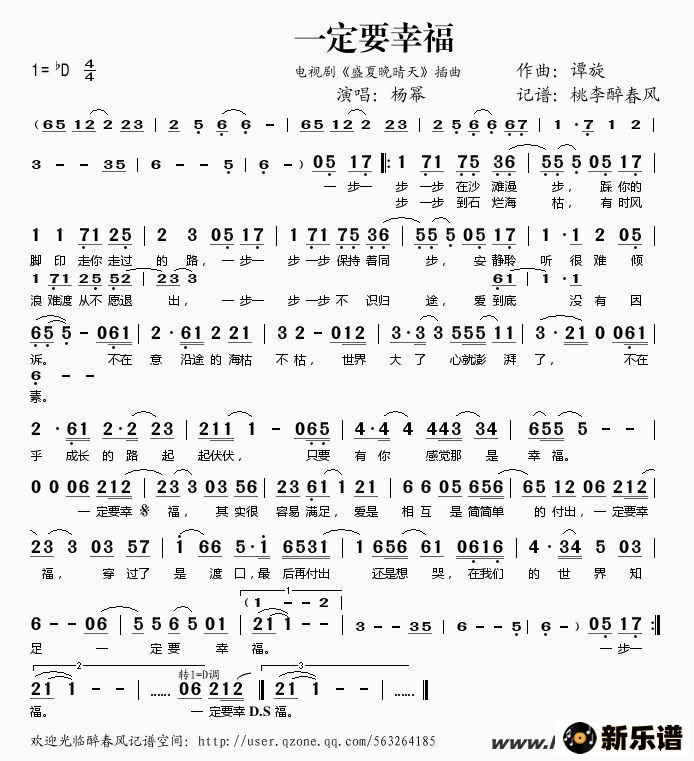 一定要幸福
1=ᵇD 4/4 电视剧《盛夏晚晴天》插曲 作曲：谭旋
演唱：杨幂 记谱：桃李醉春风
(65 12 2 23 | 2 5 6 6 | 65 12 2 23 | 2·5 6 6 67 | 1 · 7 1 2 |
3 - - 35 | 6 - - 5 | 6 - ) 05 17 ‖: 1 71 75 36 | 55 5 05 17 |
一步一 步 一步 在沙 滩漫 步， 踩 你的
步 一步 到石 烂海 枯， 有 时风
1 1 71 25 | 2 3 05 17 | 1 71 75 36 | 55 5 05 17 | 1 · 1 2 05 |
脚 印 走你 走过 的 路， 一步一 步 一步 保持 着同 步， 安 静聆 听 很 难 倾
1 71 25 52 | 23 3 61 | 1 · 1
浪 难渡 从不 愿退 出， 一步一 步一步 不 识归 途， 爱 到底 没 有 因
65 5 - 061 | 2 · 61 2 21 | 3 2 - 012 | 3 · 3 3 555 11 | 3 · 21 0 061 |
诉。 不在 意 沿途 的 海枯 不 枯， 世界 大 了 心就澎 湃 了， 不在
6 - -
素。
2 · 61 2·2 23 | 211 1 - 065 | 4·4 4 443 34 | 655 5 - - |
乎 成长 的 路 起 起伏伏， 只要 有 你 感觉那 是 幸 福。
0 0 06 212 | 23 3 03 56 | 231 61 1 21 | 6 02 05 656 | 65 12 06 212 |
一 定要幸 𝄋 福， 其 实很 容易 满足， 爱是 相 互 是 简简单 的 付出， 一 定要幸
23 3 03 57 | 1 · 1 05·1 6531 | 1 656 61 0616 | 4 · 34 03 03 |
福， 穿 过了 是 渡 口，最 后再付出 还是想 哭，在我们 的 世 界 知
1
(1 - - 2)
6 - - 06 | 5 5 65 01 | 21 1 - - | 3 - - 35 | 6 - - 5 | 6 - 05 17 :‖
足 一 定 要 幸 福。 一步一
2 转1=D调 3
21 1 - - | …… 06 212 | 21 1 - - | …… ‖
福。 一 定要幸 D.S 福。
欢迎光临醉春风记谱空间：http://user.qzone.qq.com/563264185
www. 新乐谱